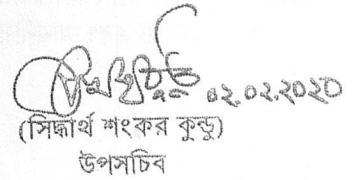 ০২.০২.২০২০
(সিদ্ধার্থ শংকর কুন্ডু)
উপসচিব